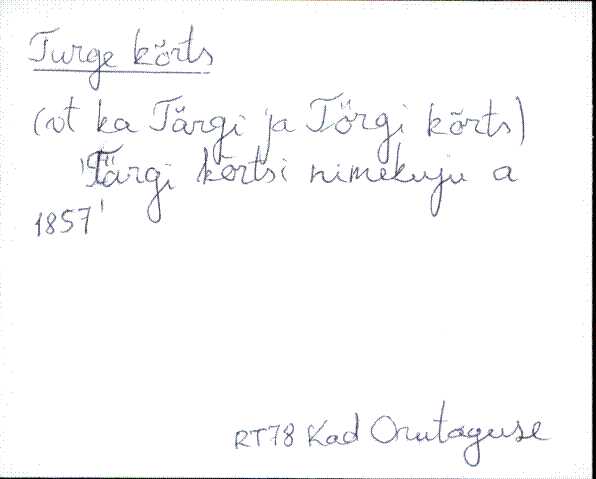 Turge kõrts
(vt ka Tärgi ja Törgi kõrts)
'Tärgi kõrtsi nimekuju a
1857'
RT78 Kad Orutaguse